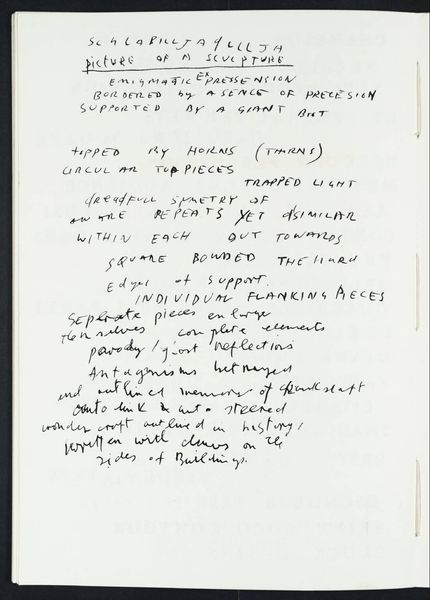 picture OF A SCULPTURE
ENIGMATIC EXPRESSENSION
BORDERED by A SENCE OF PRECESION
SUPPORTED BY A GIANT
TOPPED BY HORNS (THORNS)
CIRCULAR TOP PIECES
TRAPPED LIGHT
dreadfull SYMETRY OF
REPEATS YET dSIMILAR
WITHIN EACH OUT TOWARDS
SQUARE BOWDED THE Hard
Edges of Support.
INDIVIDUAL FLANKING PIECES
Seperate pieces enlarge
themselves complete elements
parody / gost reflections
Antagonisms betrayed
and outlined memory of
onto link
wonder craft outlined in history,
written with claws on the
sides of Buildings.